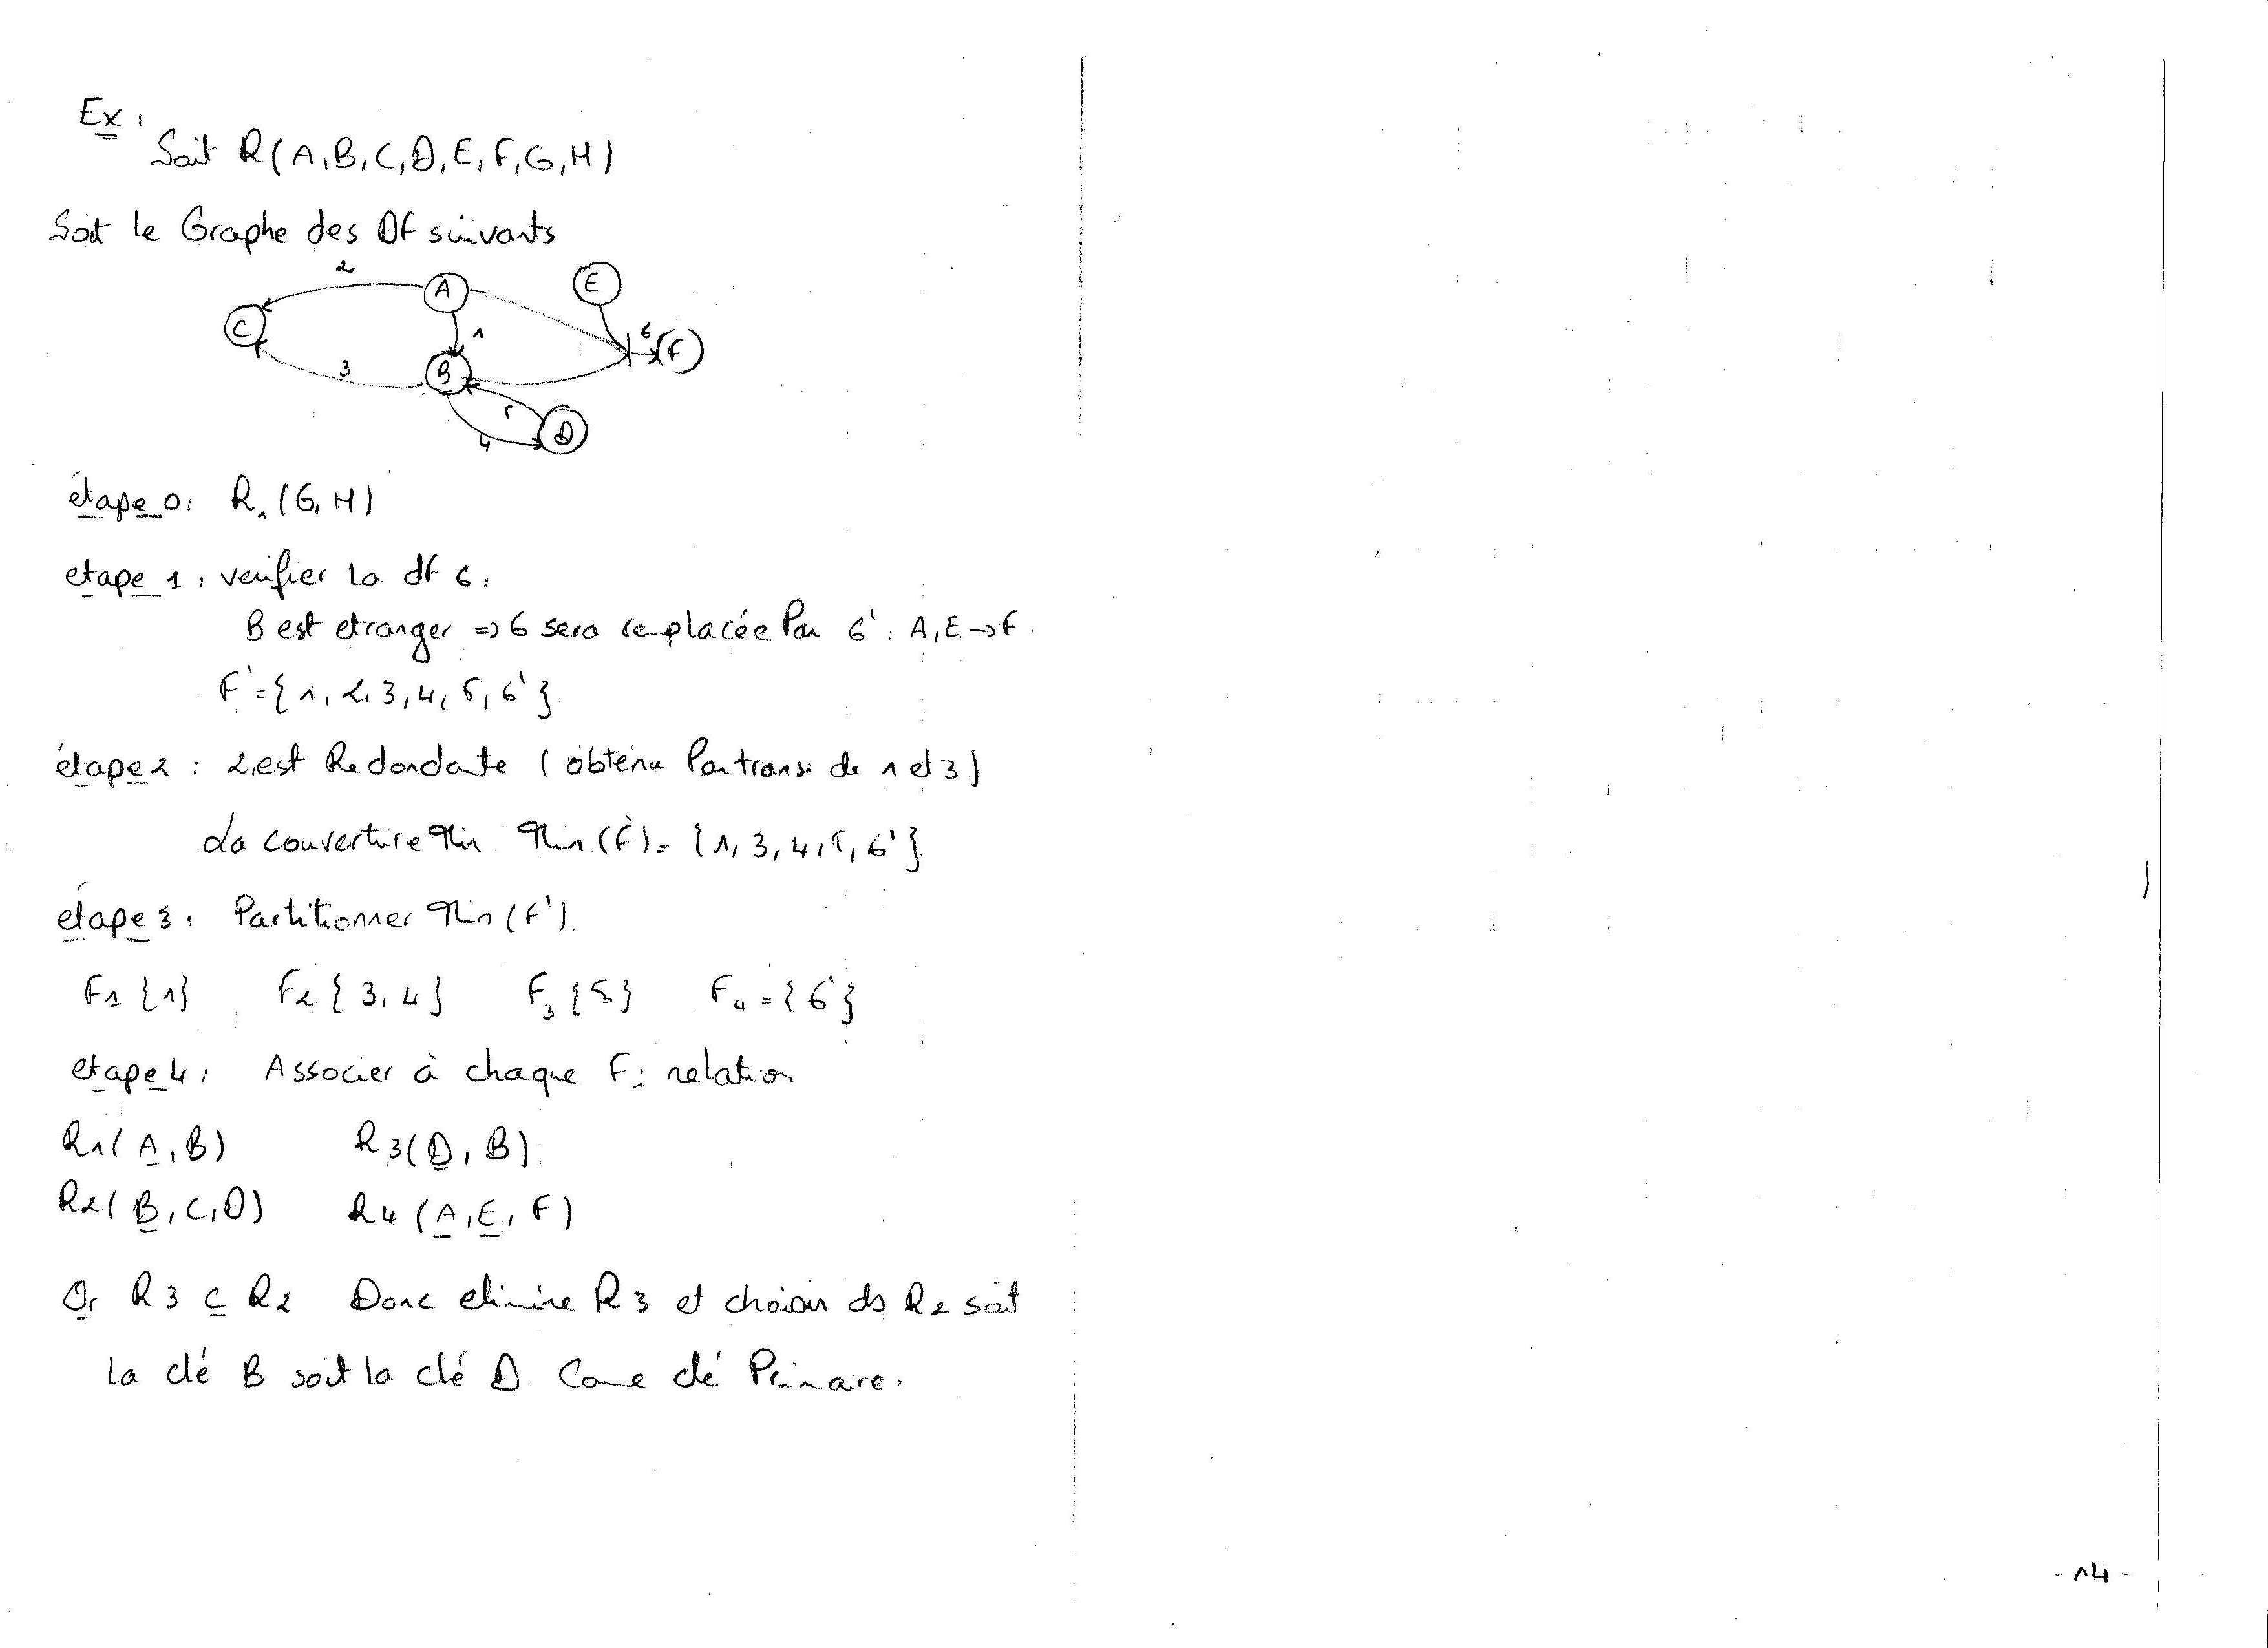 Ex :
Soit R(A,B,C,D,E,F,G,H)
Soit le Graphe des DF suivants
2 A E
C 1 6 F
3 B
5
4 D
étape 0: R1(G,H)
etape 1 : verifier la df 6 :
B est etranger => 6 sera remplacée Par 6' : A,E → F.
F' = {1, 2, 3, 4, 5, 6'}
étape 2 : 2 est Redondante ( obtenu Par transi. de 1 et 3 )
La couverture Min Min (F') = {1, 3, 4, 5, 6'}.
etape 3 : Partitionner Min (F').
F1 {1} F2 {3, 4} F3 {5} F4 = {6'}
etape 4 : Associer à chaque Fi relation
R1( A, B) R3(D, B)
R2( B, C, D) R4 (A, E, F)
Or R3 ⊆ R2 Donc elimine R3 et choisir ds R2 soit
la clé B soit la clé D Come clé Primaire.
- 14 -